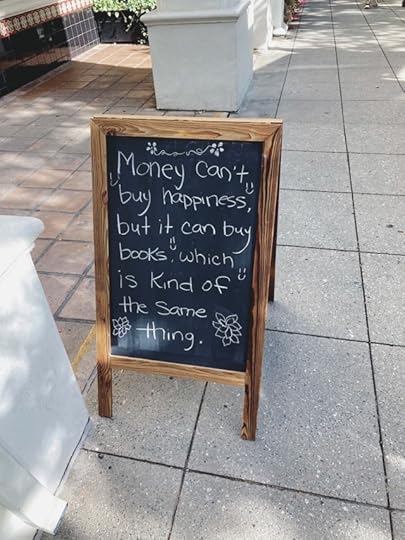 Money can't
buy happiness,
but it can buy
books, which
is kind of
the same
thing.